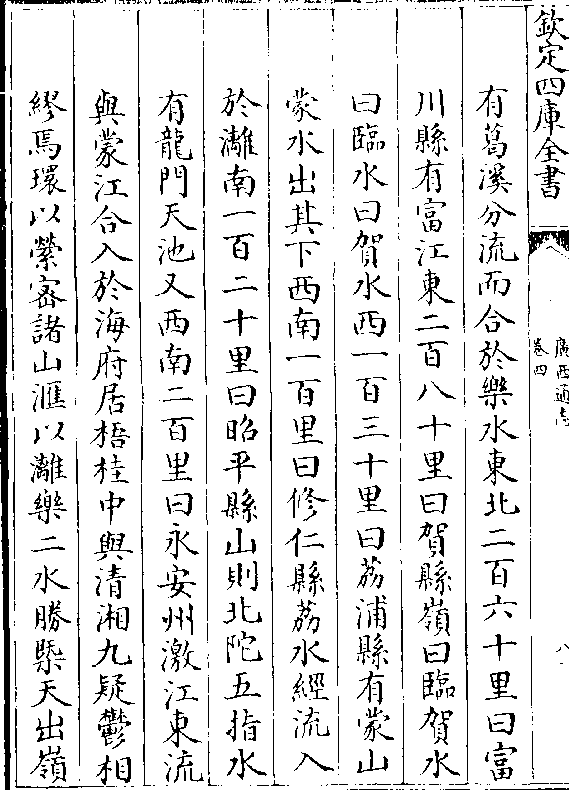 欽定四庫全書
廣西通志
卷四
八
有葛溪分流而合於樂水東北二百六十里曰富
川縣有富江東二百八十里曰賀縣嶺曰臨賀水
曰臨水曰賀水西一百三十里曰荔浦縣有蒙山
蒙水出其下西南一百里曰修仁縣荔水經流入
於灕南一百二十里曰昭平縣山則北陀五指水
有龍門天池又西南二百里曰永安州激江東流
與蒙江合入於海府居梧桂中與清湘九疑鬱相
繆焉環以縈宻諸山滙以灕樂二水勝槩天出嶺